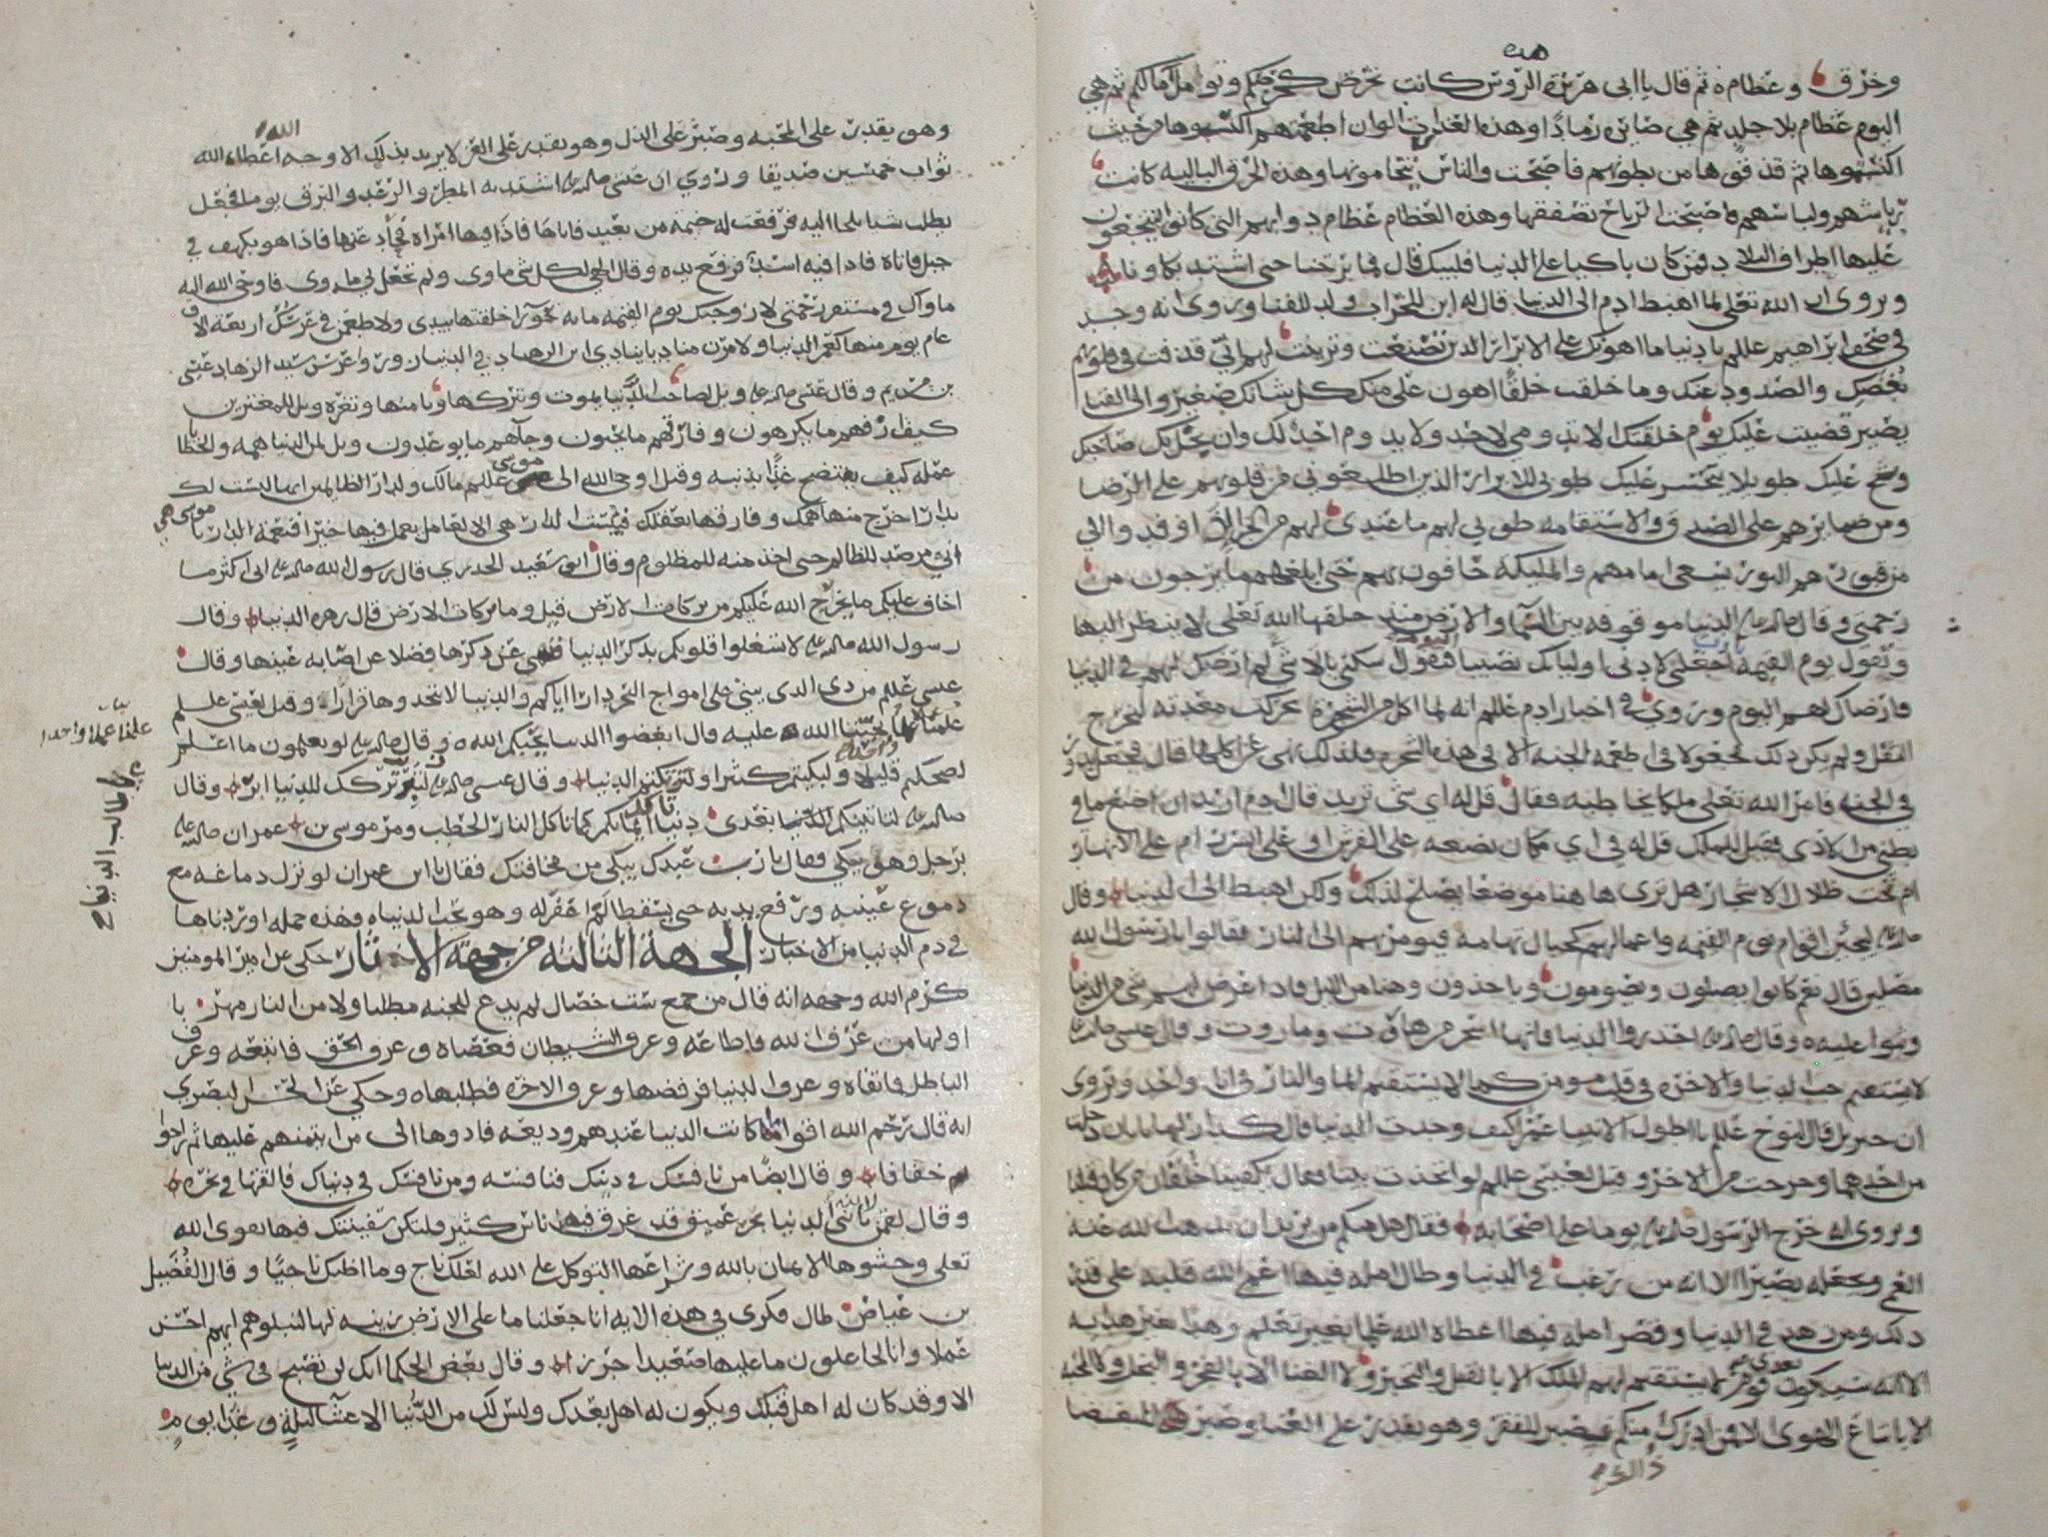 هذه
وخرق وعظام ثم قال يا ابى هريرة هذه الروس كانت تحرص كحرصكم وتوامل امالكم ثم هي
اليوم عظام بلا جلد ثم هي صايرة رمادا وهذه العذرات الوان اطعمتهم اكتسبوها من حيث
اكتسبوها ثم قذفوها من بطونهم فاصبحت والناس يتحامونها وهذه الخرق الباليه كانت
رياشهم ولباسهم فاصبحت الرياح تصفقها وهذه العظام عظام دوابهم التي كانوا ينتجعون
عليها اطراف البلاد فمن كان باكيا على الدنيا فليبك قال فما برحنا حتى اشتد بكاونا
ويروى ان الله تعلى لما اهبط ادم الى الدنيا قال له ابن للخراب ولد للفنا وروى انه وجد
في صحف ابراهيم عللم يا دنيا ما اهونك على الابرار الذين تصنعت وتزينت لهم اني قذفت في قلوبهم
بغضك والصدود عنك وما خلقت خلقا اهون علي منك كل شانك صغير والى الفنا
يصير قضيت عليك يوم خلقتك الا تدومي لاحد ولا يدوم احد لك وان بخل بك صاحبك
وشح عليك طوبى للابرار الذين اطلعوني من قلوبهم على الرضا
ومن ضمايرهم على الصدق والاستقامة طوبى لهم ما عندي لهم من الجزا اذا وفدوا الي
من قبورهم النور يسعى امامهم والمليكة حافون بهم حتى ابلغهم ما يرجون من
رحمتي وقال الدنيا موقوفه بين السما والارض منذ خلقها الله تعلى لا ينظر اليها
وتقول يوم القيمه يا رب اجعلني لادنى اوليايك اليوم نصيبا فيقول اسكتي يا لا شي لم ارضك لهم في الدنيا
فارضاك لهم اليوم وروي في اخبار ادم عللم انه لما اكل من الشجرة تحركت معدته لخروج
الثفل ولم يكن ذلك مجعولا في اطعمة الجنه الا في هذه الشجره فلذلك نهي عن اكلها قال فجعل يدور
في الجنه فامر الله تعلى ملكا يخاطبه فقال قل له اي شي تريد قال ادم اريد ان اضع ما في
بطني من الاذى فقيل للملك قل له في اي مكان تضعه على الفرش او على السرر ام على الانهار
ام تحت ظلال الاشجار هل ترى هاهنا موضعا يصلح لذلك ولكن اهبط الى الدنيا وقال
ليجين اقوام يوم القيمه واعمالهم كجبال تهامه فيومر بهم الى النار فقالوا يا رسول الله
مصلين قال نعم كانوا يصلون ويصومون وياخذون وهنا من الليل فاذا عرض لهم شي من الدنيا
وثبوا عليه وقال احذروا الدنيا فانها اسحر من هاروت وماروت وقال عيسى
لا يستقيم حب الدنيا والاخره في قلب مومن كما لا يستقيم الما والنار في انا واحد وتروى
ان جبريل قال لنوح عللم يا اطول الانبيا عمرا كيف وجدت الدنيا قال كدار لها بابان دخلت
من احدهما وخرجت من الاخر وقيل لعيسى عللم لو اتخذت بيتا فقال يكفينا خلقان من كان قبلنا
ويروى انه خرج الرسول يوما على اصحابه فقال هل منكم من يريد ان يذهب الله عنه
العمى ويجعله بصيرا الا انه من رغب في الدنيا وطال امله فيها اعمى الله قلبه على قدر
ذلك ومن زهد في الدنيا وقصر امله فيها اعطاه الله علما بغير تعلم وهدا بغير هدايه
الا انه سيكون بعدي قوم لا يستقيم لهم الملك الا بالقتل والتجبر ولا الغنا الا بالفخر والبخل ولا المحبه
الا باتباع الهوى الا فمن ادرك ذلك منكم فصبر للفقر وهو يقدر على الغنا وصبر للبغضا
وهو يقدر على المحبه وصبر على الذل وهو يقدر على العز لا يريد بذلك الا وجه الله اعطاه الله
ثواب خمسين صديقا وروي ان عيسى اشتد به المطر والرعد والبرق يوما فجعل
يطلب شيا يلجا اليه فرفعت له خيمة من بعيد فاتاها فاذا فيها امراه فحاد عنها فاذا هو بكهف في
جبل فاتاه فاذا فيه اسد فرفع يده وقال الهي لكل شي ماوى ولم تجعل لي ماوى فاوحى الله اليه
ماواك في مستقر رحمتي لازوجنك يوم القيمه مايه حورا خلقتها بيدي ولاطعمن في عرسك اربعة الاف
عام يوم منها كعمر الدنيا ولامرن مناديا ينادي اين الزهاد في الدنيا زوروا عرس سيد الزهاد عيسى
بن مريم وقال عيسى ويل لصاحب الدنيا يموت ويتركها ويامنها وتغره ويل للمغترين
كيف ارهقهم ما يكرهون وفارقهم ما يحبون وجآهم ما يوعدون ويل لمن الدنيا همه والخطايا
عمله كيف يفتضح غدا بذنبه وقيل اوحى الله الى موسى عللم مالك ولدار الظالمين انها ليست لك
بدار اخرج منها همك وفارقها بعقلك فبئست الدار هي الا لعامل يعمل فيها خيرا فنعمه الدار يا موسى هي
اني مرصد للظالم حتى اخذ منه للمظلوم وقال ابو سعيد الخدري قال رسول الله ان اكثر ما
اخاف عليكم ما يخرج الله عليكم من بركات الارض قيل وما بركات الارض قال زهرة الدنيا وقال
رسول الله لا تشغلوا قلوبكم بذكر الدنيا فنهى عن ذكرها فضلا عن اصابه عينها وقال
عيسى عللم من ذي الذي يبني على امواج البحر دارا اياكم والدنيا لا تتخذوها قرارا وقيل لعيسى عللم
علمنا عملا يحبنا الله عليه قال ابغضوا الدنيا يحبكم الله وقال لو تعلمون ما اعلم
لضحكتم قليلا ولبكيتم كثيرا ولتركتم الدنيا وقال عيسى تركك للدنيا ابر وقال
لتاتينكم بعدي دنيا تاكل ايمانكم كما تاكل النار الحطب ومر موسى بن عمران
برجل وهو يبكي فقال يا رب عبدك يبكي من مخافتك فقال يا ابن عمران لو نزل دماغه مع
دموع عينيه ورفع يديه حتى يسقطا لم اغفر له وهو يحب الدنيا فهذه جمله اوردناها
في ذم الدنيا من الاخبار الجهة الثالثه من جهة الاثار حكي عن امير المومنين
كرم الله وجهه انه قال من جمع ست خصال لم يدع للجنه مطلبا ولا من النار مهربا
اولها من عرف الله فاطاعه وعرف الشيطان فعصاه وعرف الحق فاتبعه وعرف
الباطل فاتقاه وعرف الدنيا فرفضها وعرف الاخره فطلبها وحكي عن الحسن البصري
انه قال رحم الله اقواما كانت الدنيا عندهم وديعه فادوها الى من ايتمنهم عليها ثم راحوا
خفافا وقال ايضا من نافسك في دينك فنافسه ومن نافسك في دنياك فالقها في نحره
وقال لقمن لابنه يا بني الدنيا بحر عميق قد غرق فيها ناس كثير فلتكن سفينتك فيها تقوى الله
تعلى وحشوها الايمان بالله وشراعها التوكل على الله لعلك ناج وما اظنك ناجيا وقال الفضيل
بن عياض طال فكري في هذه الايه انا جعلنا ما على الارض زينه لها لنبلوهم ايهم احسن
عملا وانا لجاعلون ما عليها صعيدا جرزا وقال بعض الحكما انك لن تصبح في شي من الدنيا
الا وقد كان له اهل قبلك ويكون له اهل بعدك وليس لك من الدنيا الا عشا ليلة وغدا يوم
علمنا عملا واحدا
طالب الدنيا